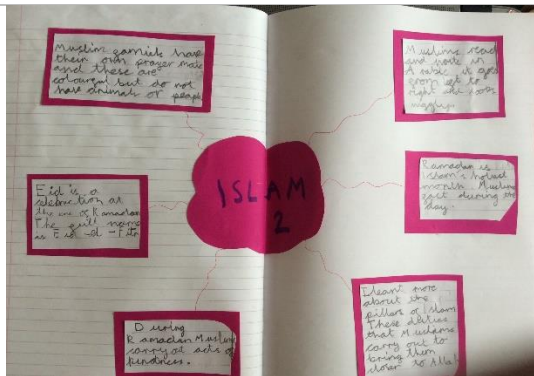 Muslim families have
their own prayer mats
and these are
coloured but do not
have animals or people
Muslims read
and write in
Arabic it goes
from
right and looks
Eid is a
celebration at
the end of Ramadan
The full name
is Eid-al-Fitr
ISLAM
2
Ramadan is
Islam's holiest
month. Muslims
fast during the
day.
During
Ramadan Muslims
carry out acts of
kindness.
I learnt more
about the
pillars of Islam
These duties
that Muslims
carry out to
bring them
closer to Allah